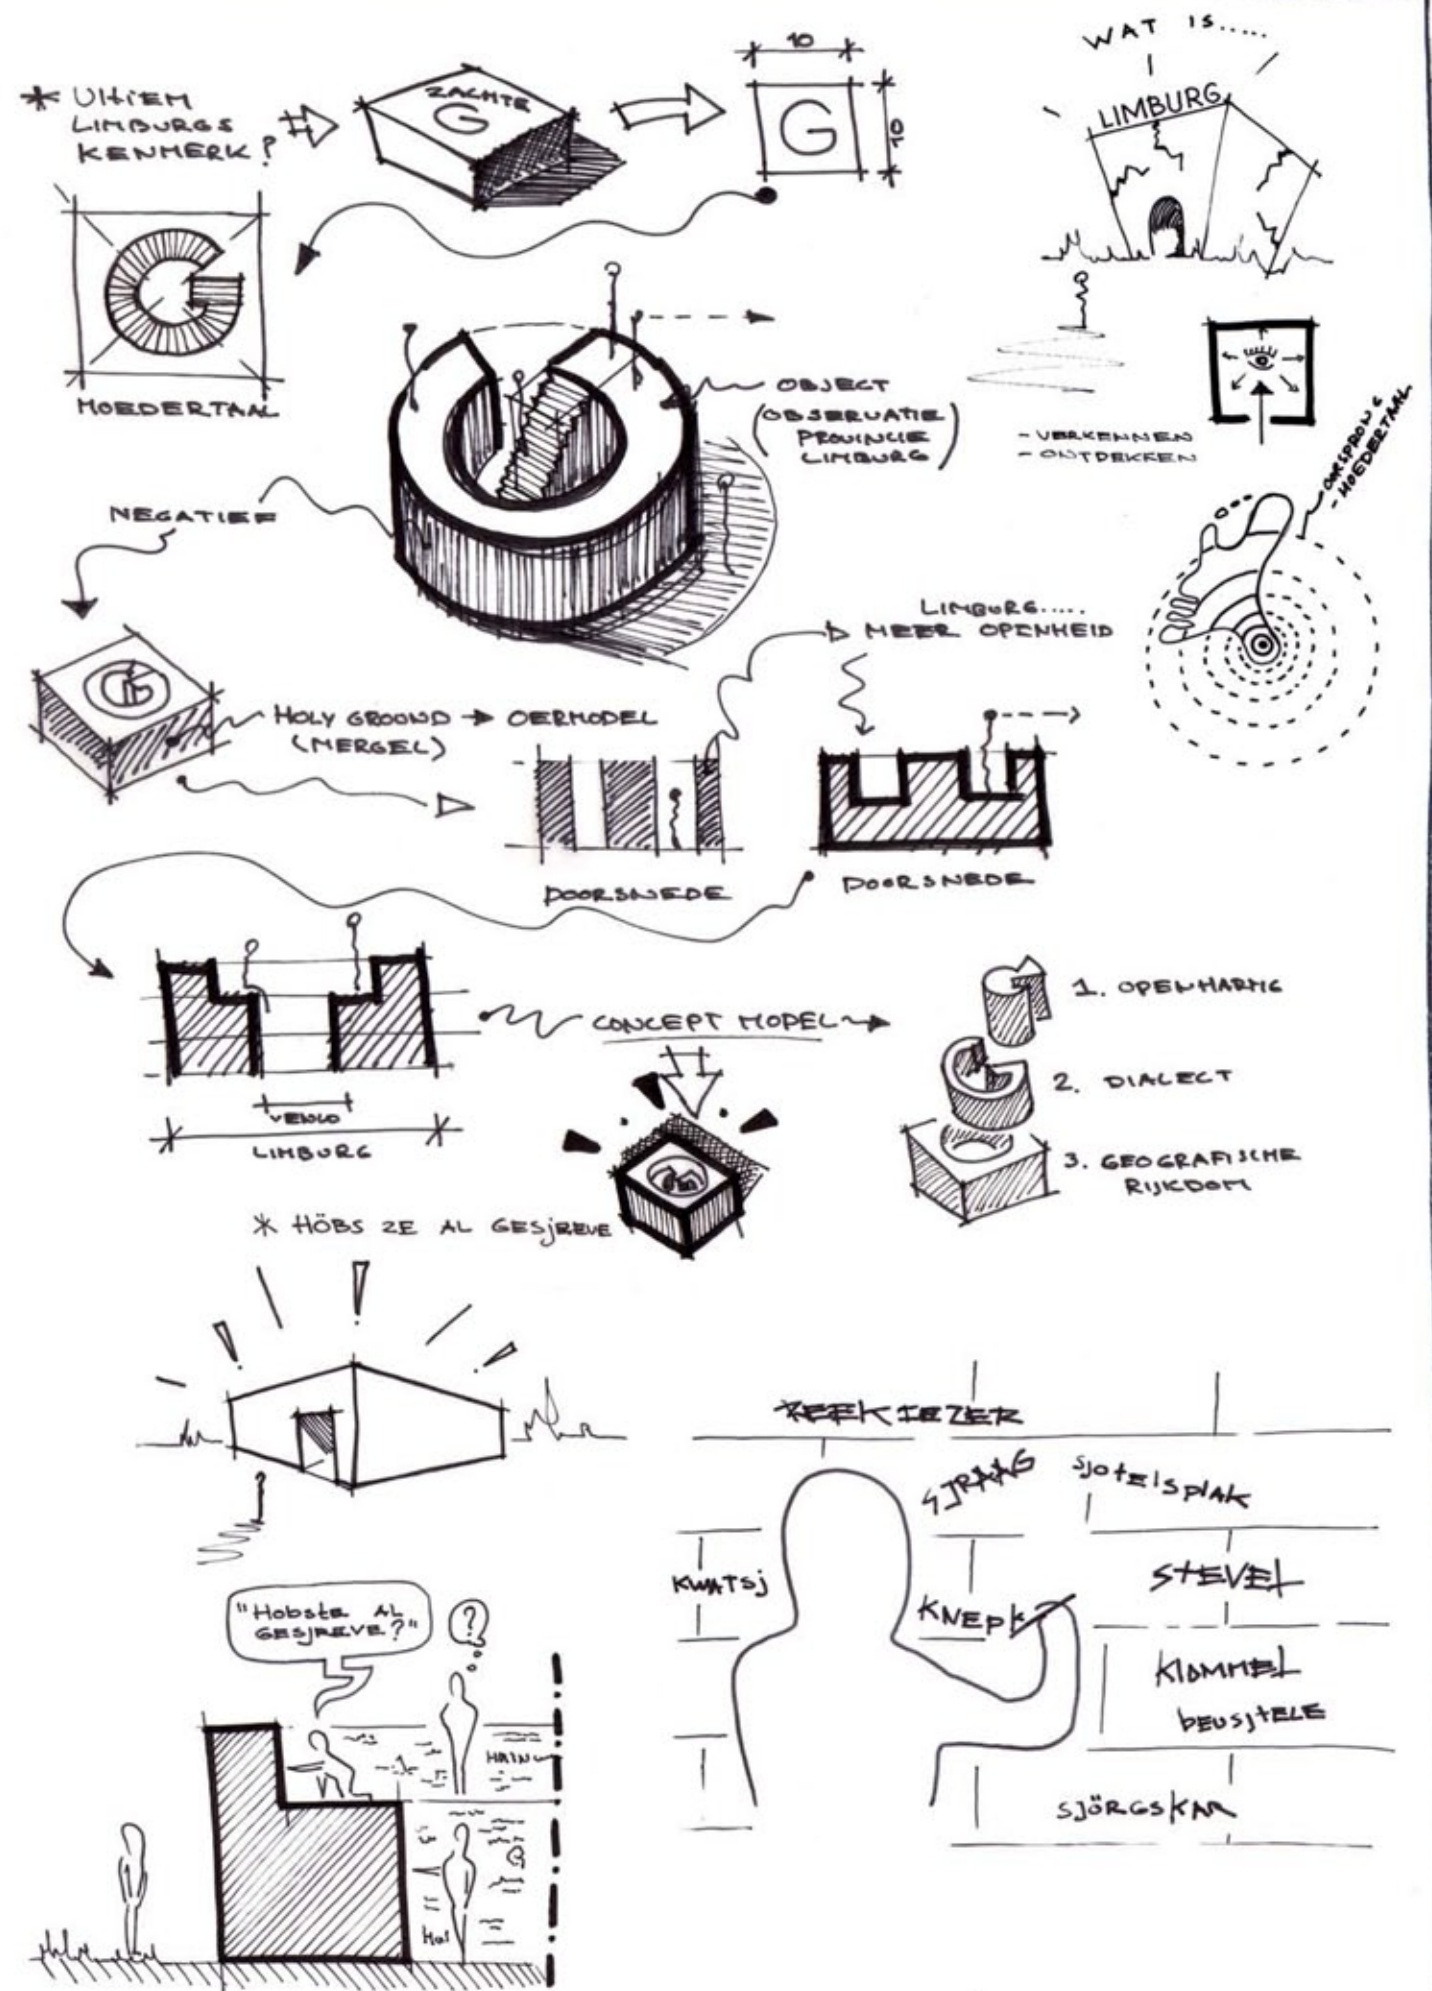 * ULTIEM
LIMBURGS
KENMERK?
ZACHTE
G
10
G
10
WAT IS.....
LIMBURG
MOEDERTAAL
OBJECT
(OBSERVATIE
PROVINCIE
LIMBURG)
- VERKENNEN
- ONTDEKKEN
OORSPRONG
- MOEDERTAAL
NEGATIEF
LIMBURG.....
MEER OPENHEID
HOLY GROUND → OERMODEL
(MERGEL)
DOORSNEDE
DOORSNEDE
CONCEPT MODEL
VENLO
LIMBURG
1. OPENHARTIG
2. DIALECT
3. GEOGRAFISCHE
RIJKDOM
* HÖBS ZE AL GESJREVE
REEKIEZER
SJRAAG
SJOTELSPLAK
KWATSJ
KNEPK
STEVEL
KLOMMEL
BEUSJTELE
SJÖRGSKAR
"Hobste AL
GESJREVE?"
?
HAIN
Hoi